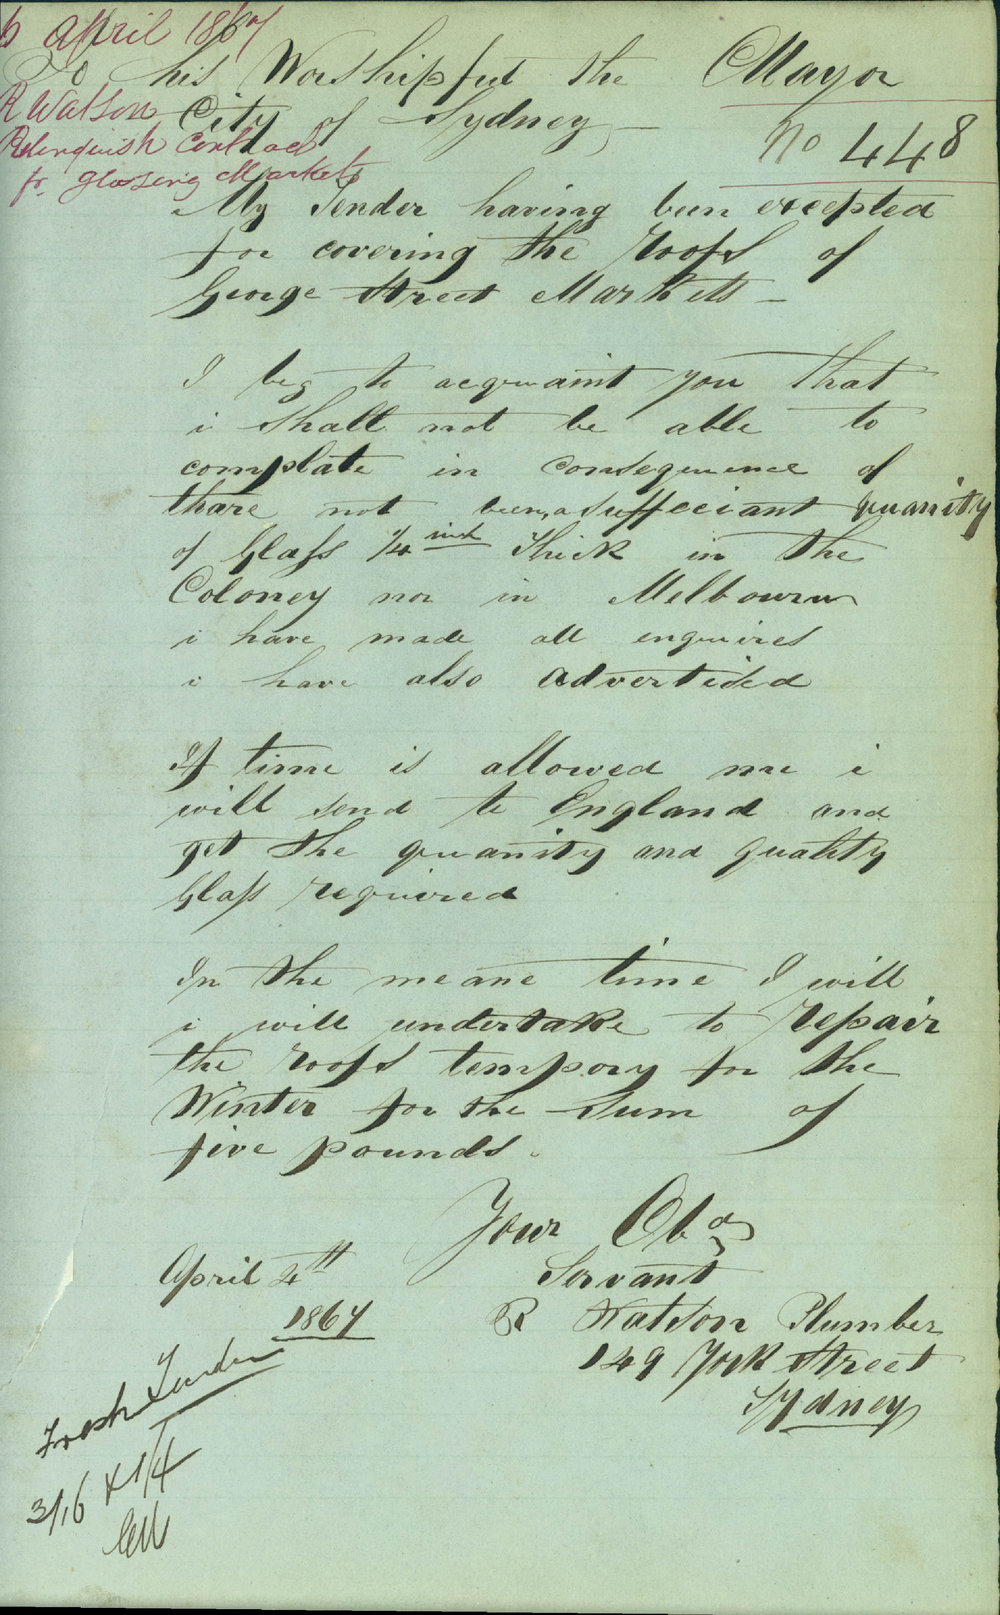 6 April 1867
To his Worshipful the Mayor
R Watson
City of Sydney
No 448
Relinquish Contract
for glasing Markets
My Tender having been excepted
for covering the roofs of
George Street Markets —
I beg to acquaint you that
i shall not be able to
complate in consequence of
thare not been, a suffeciant quanity
of Glass 1/4 inch Thick in the
Coloney nor in Melbourn
i have made all enquires
i have also advertised
If time is allowed me i
will send to England and
get the quanity and quality
Glass required
In the meane time I will
i will undertake to repair
the roofs tempory for the
Winter for the Sum of
five pounds.
Your Obd
Servant
April 4th
1867
R Watson Plumber
149 York Street
Sydney
Fresh Tender
3/16 & 1/4